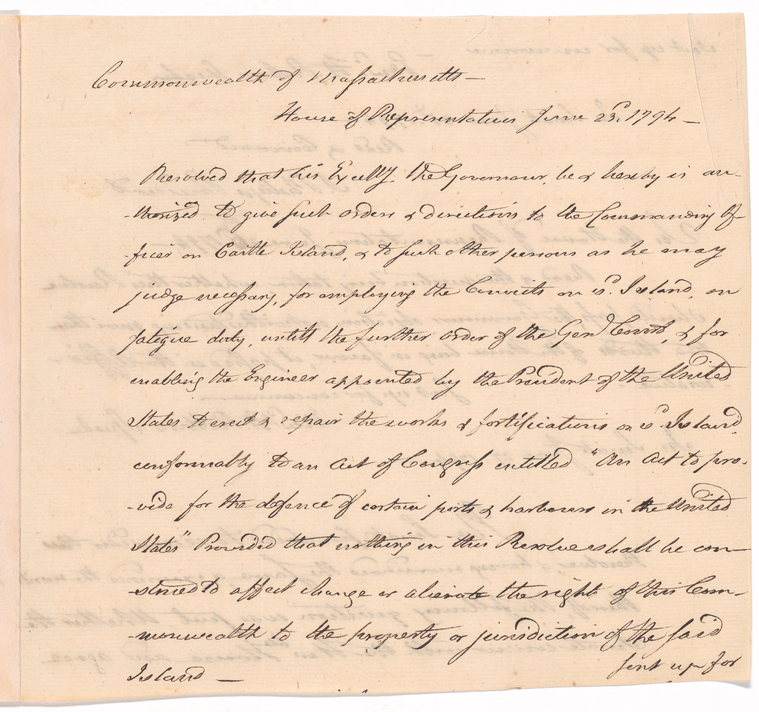 Commonwealth of Massachusetts —
House of Representatives June 23d. 1794 —
Resolved that his Excelly. the Governour, be & hereby is au-
-thorized to give such orders & directions to the Commanding Of-
ficer on Castle Island, & to such other persons as he may
judge necessary, for employing the Convicts on sd. Island, on
fatigue duty, untill the further order of the Genl Court, & for
enabling the Engineer appointed by the President of the United
States to erect & repair the works & fortifications on sd. Island,
conformably to an Act of Congress entitled "An Act to pro-
-vide for the defence of certain ports & harbours in the United
States" Provided that nothing in this Resolve shall be con-
-strued to affect change or alienate the right of this Com-
-monwealth to the property or jurisdiction of the said
Island —
sent up for